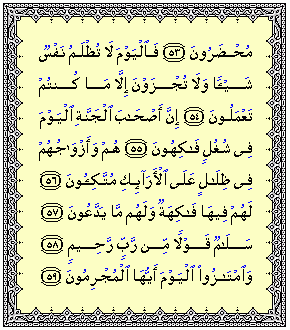 مُحْضَرُونَ ﴿٥٣﴾ فَٱلْيَوْمَ لَا تُظْلَمُ نَفْسٌ
شَيْـًٔا وَلَا تُجْزَوْنَ إِلَّا مَا كُنتُمْ
تَعْمَلُونَ ﴿٥٤﴾ إِنَّ أَصْحَـٰبَ ٱلْجَنَّةِ ٱلْيَوْمَ
فِى شُغُلٍ فَـٰكِهُونَ ﴿٥٥﴾ هُمْ وَأَزْوَٰجُهُمْ
فِى ظِلَـٰلٍ عَلَى ٱلْأَرَآئِكِ مُتَّكِـُٔونَ ﴿٥٦﴾
لَهُمْ فِيهَا فَـٰكِهَةٌ وَلَهُم مَّا يَدَّعُونَ ﴿٥٧﴾
سَلَـٰمٌ قَوْلًا مِّن رَّبٍّ رَّحِيمٍ ﴿٥٨﴾
وَٱمْتَـٰزُوا۟ ٱلْيَوْمَ أَيُّهَا ٱلْمُجْرِمُونَ ﴿٥٩﴾